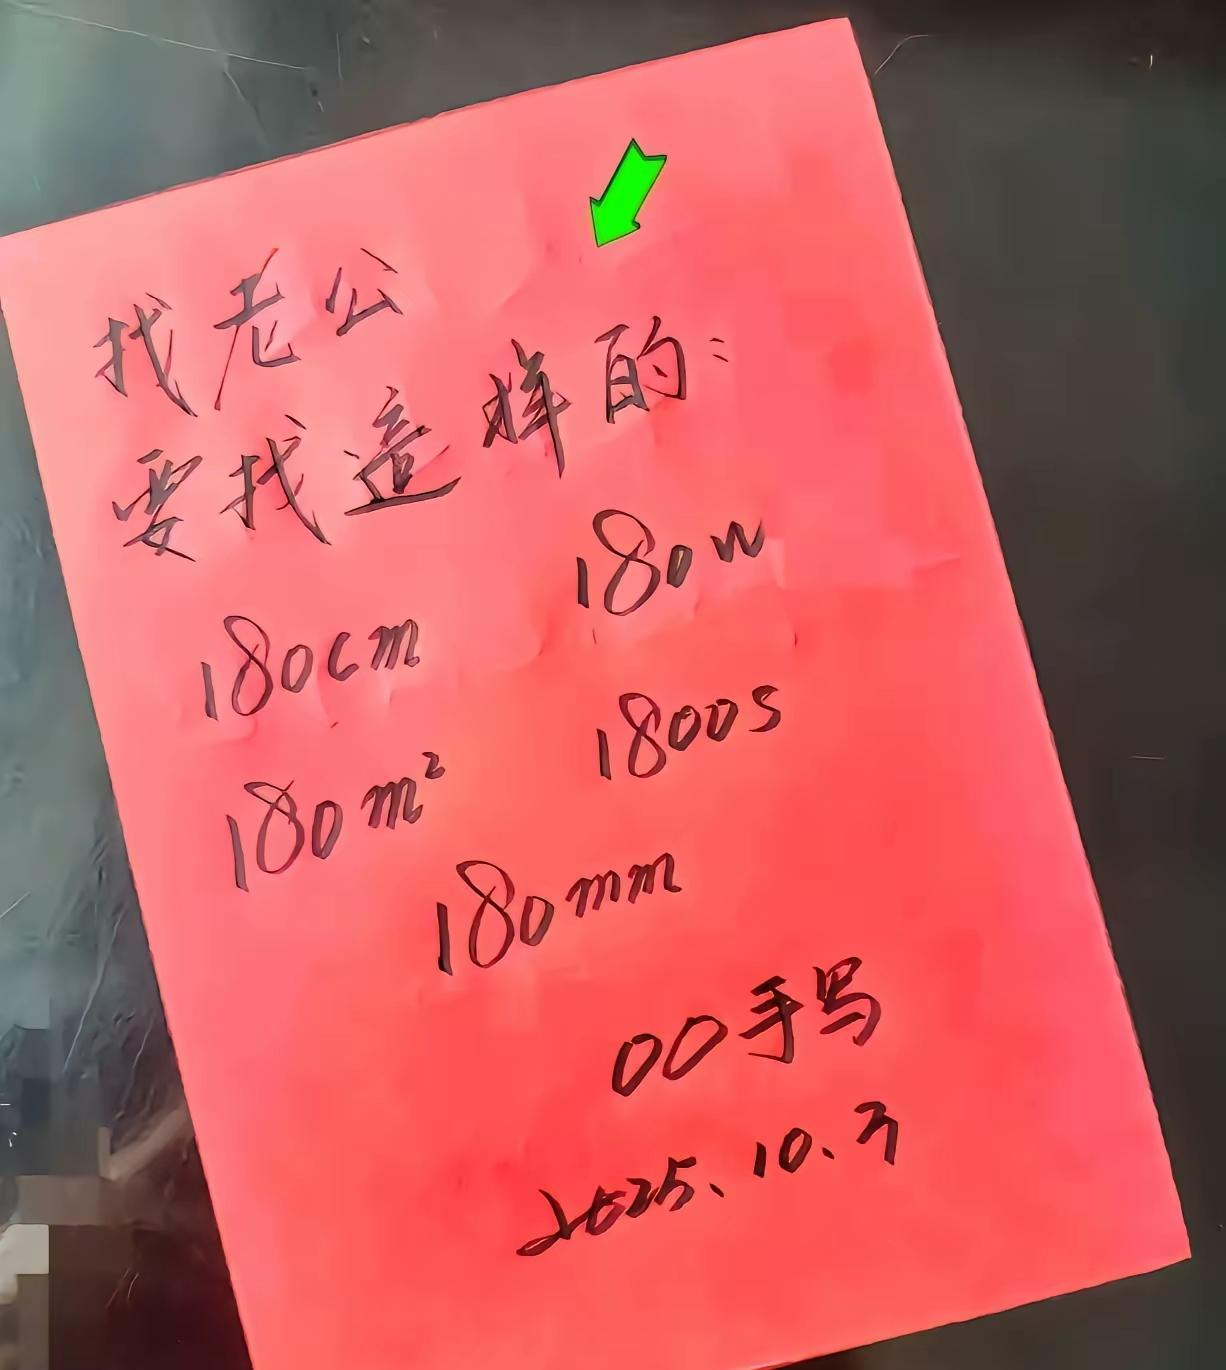 找老公
要找这样的:
180cm 180w
180m² 1800s
180mm
00手写
2025.10.3